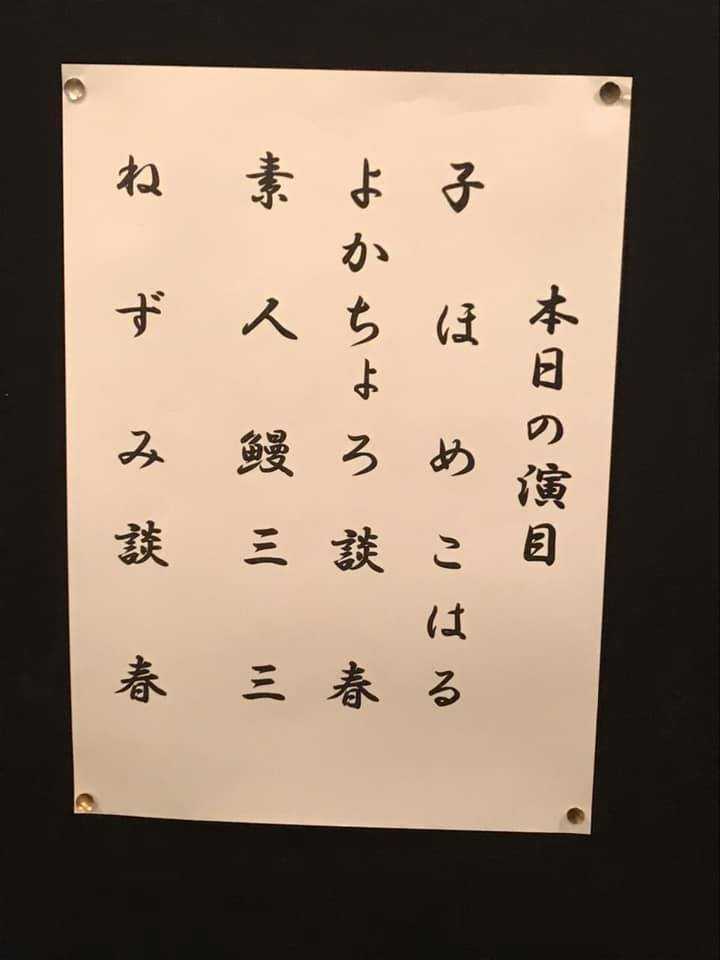 本日の演目
子ほめこはる
よかちょろ談春
素人鰻三三
ねずみ談春